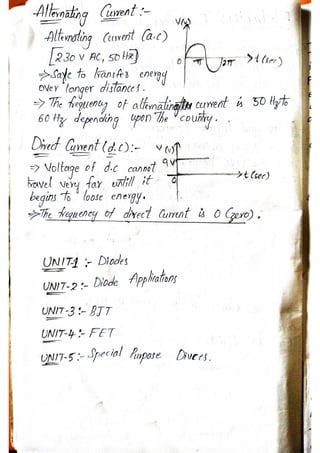 Alternating Current :-
V(v)
Alternating Current (a.c)
[230 V AC, 50 Hz]
0 π 2π → t (sec)
⇒ Safe to transfer energy
over longer distances.
⇒ The frequency of alternating current is 50 Hz to
60 Hz depending upon the country.
Direct Current (d.c) :-
V (v)
9V
0 → t (sec)
⇒ Voltage of d.c cannot
travel very far untill it
begins to loose energy.
⇒ The frequency of direct current is 0 (zero).
UNIT-1 :- Diodes
UNIT-2 :- Diode Applications
UNIT-3 :- BJT
UNIT-4 :- FET
UNIT-5 :- Special Purpose Divces.